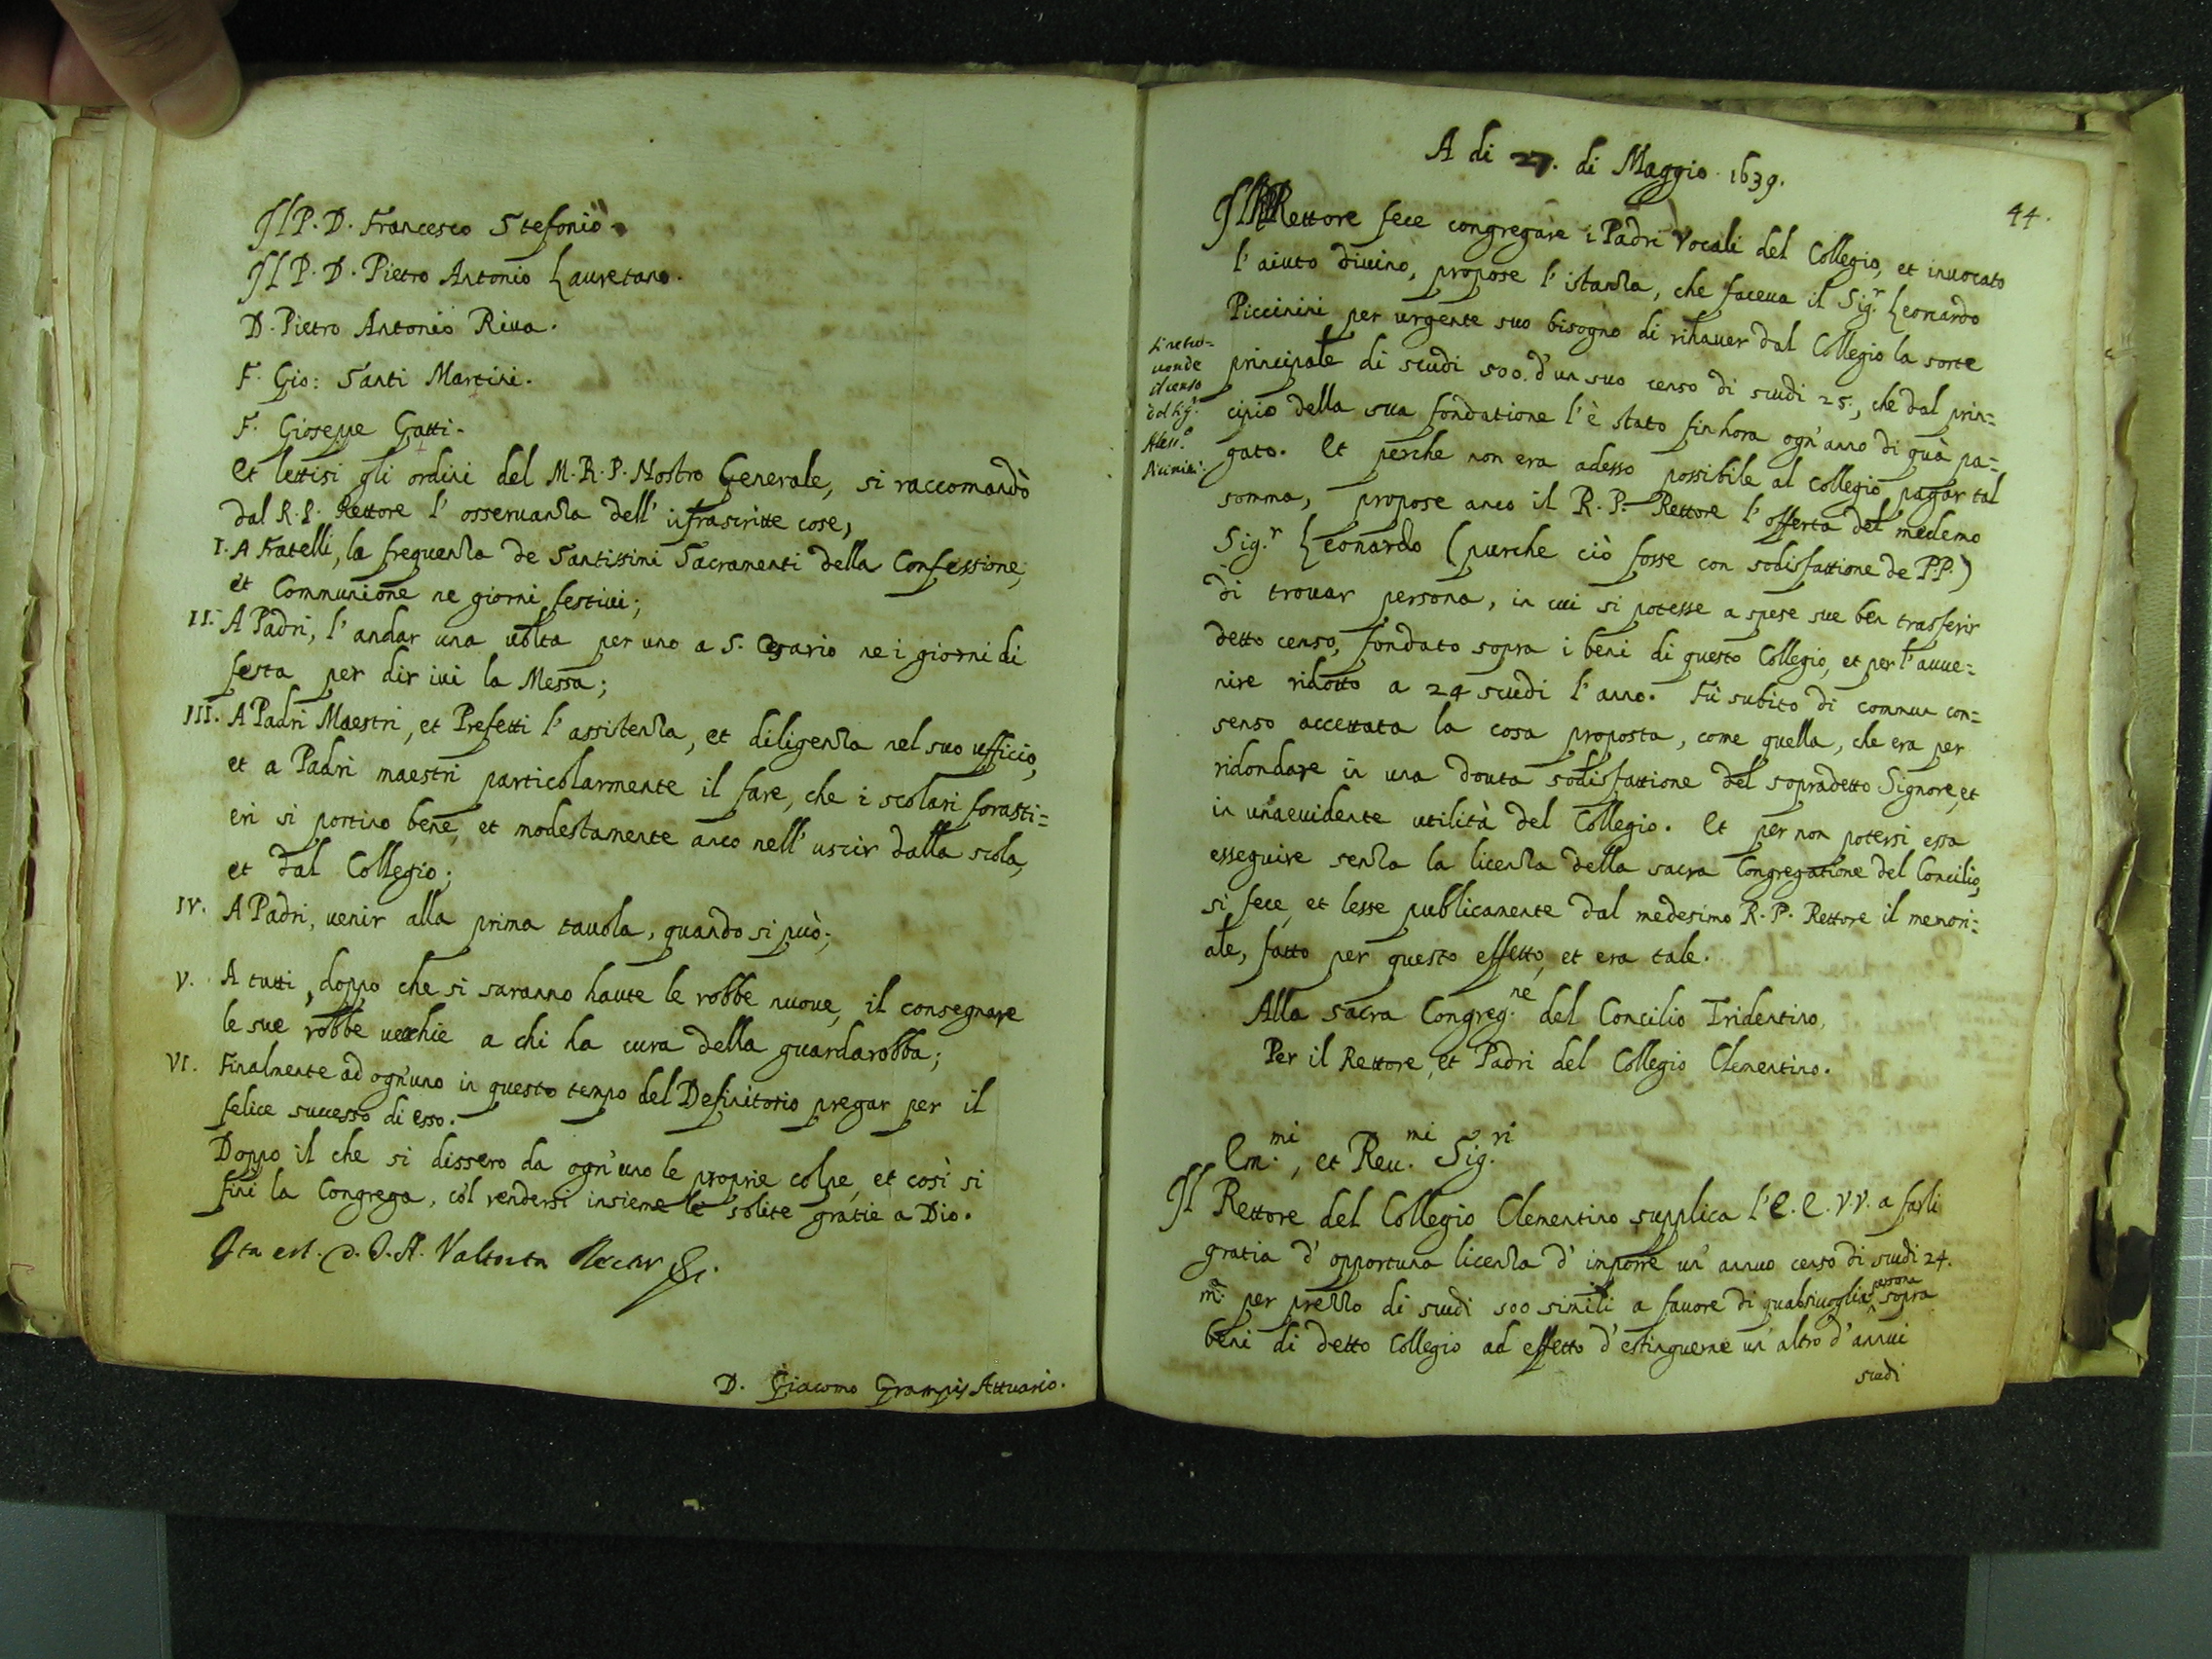 Il P. D. Francesco Stefonio.
Il P. D. Pietro Antonio Lauretano.
D. Pietro Antonio Riua.
F. Gio: Santi Martini.
F. Gioseppe Gatti.
Et lettisi gli ordini del M. R. P. Nostro Generale, si raccomandò
dal R. P. Rettore l' osseruanza dell' infrascritte cose,
I. A Fratelli, la frequenza de Santissimi Sacramenti della Confessione,
et Communione ne giorni festiui;
II. A Padri, l' andar una uolta per uno a S. Cesario ne i giorni di
festa per dir iui la Messa;
III. A Padri Maestri, et Prefetti l' assistenza, et diligenza nel suo ufficio,
et a Padri maestri particolarmente il fare, che i scolari forasti=
eri si portino bene, et modestamente anco nell' uscir dalla scola,
et dal Collegio;
IV. A Padri, uenir alla prima tauola, quando si può;
V. A tutti, doppo che si saranno haute le robbe nuoue, il consegnare
le sue robbe uecchie a chi ha cura della guardarobba;
VI. Finalmente ad ogn'uno in questo tempo del Definitorio pregar per il
felice successo di esso.
Doppo il che si dissero da ogn'uno le proprie colpe, et così si
finì la Congrega, co'l rendersi insieme le solite gratie a Dio.
Ita est. D. Valtorta Rector
D. Giacomo Grampis Attuario.
A di 27. di Maggio. 1639.
44.
Il Rettore fece congregare i Padri Vocali del Collegio, et inuocato
l' aiuto diuino, propose l' istanza, che faceua il Sig.r Leonardo
Piccinini per urgente suo bisogno di rihauer dal Collegio la sorte
principale di scudi 500. d'un suo censo di scudi 25., che dal prin=
cipio della sua fondatione l' è stato fin hora ogn'anno di quà pa=
gato. Et perche non era adesso possibile al Collegio pagar tal
somma, propose anco il R. P. Rettore l' offerta del medemo
Sig.r Leonardo (purche ciò fosse con sodisfattione de P.P.)
di trouar persona, in cui si potesse a spese sue ben trasferir
detto censo, fondato sopra i beni di questo Collegio, et per l' auue=
nire ridotto a 24 scudi l' anno. Fù subito di commun con=
senso accettata la cosa proposta, come quella, che era per
ridondare in una douta sodisfattione del sopradetto Signore, et
in una euidente utilità del Collegio. Et per non potersi essa
esseguire senza la licenza della sacra Congregatione del Concilio,
si fece, et lesse publicamente dal medesimo R. P. Rettore il memori=
ale, fatto per questo effetto, et era tale.
il censo
del Sig.r
Aless.o
Alla sacra Congreg.ne del Concilio Tridentino,
Per il Rettore, et Padri del Collegio Clementino.
Em.mi, et Reu.mi Sig.ri
Il Rettore del Collegio Clementino supplica l' E. E. V.V. a farli
gratia d' opportuna licenza d' imporre un' annuo censo di scudi 24.
m.a per prezzo di scudi 500 simili a fauore di qualsiuoglia persona sopra
beni di detto Collegio ad effetto d' estinguerne un' altro d' annui
scudi